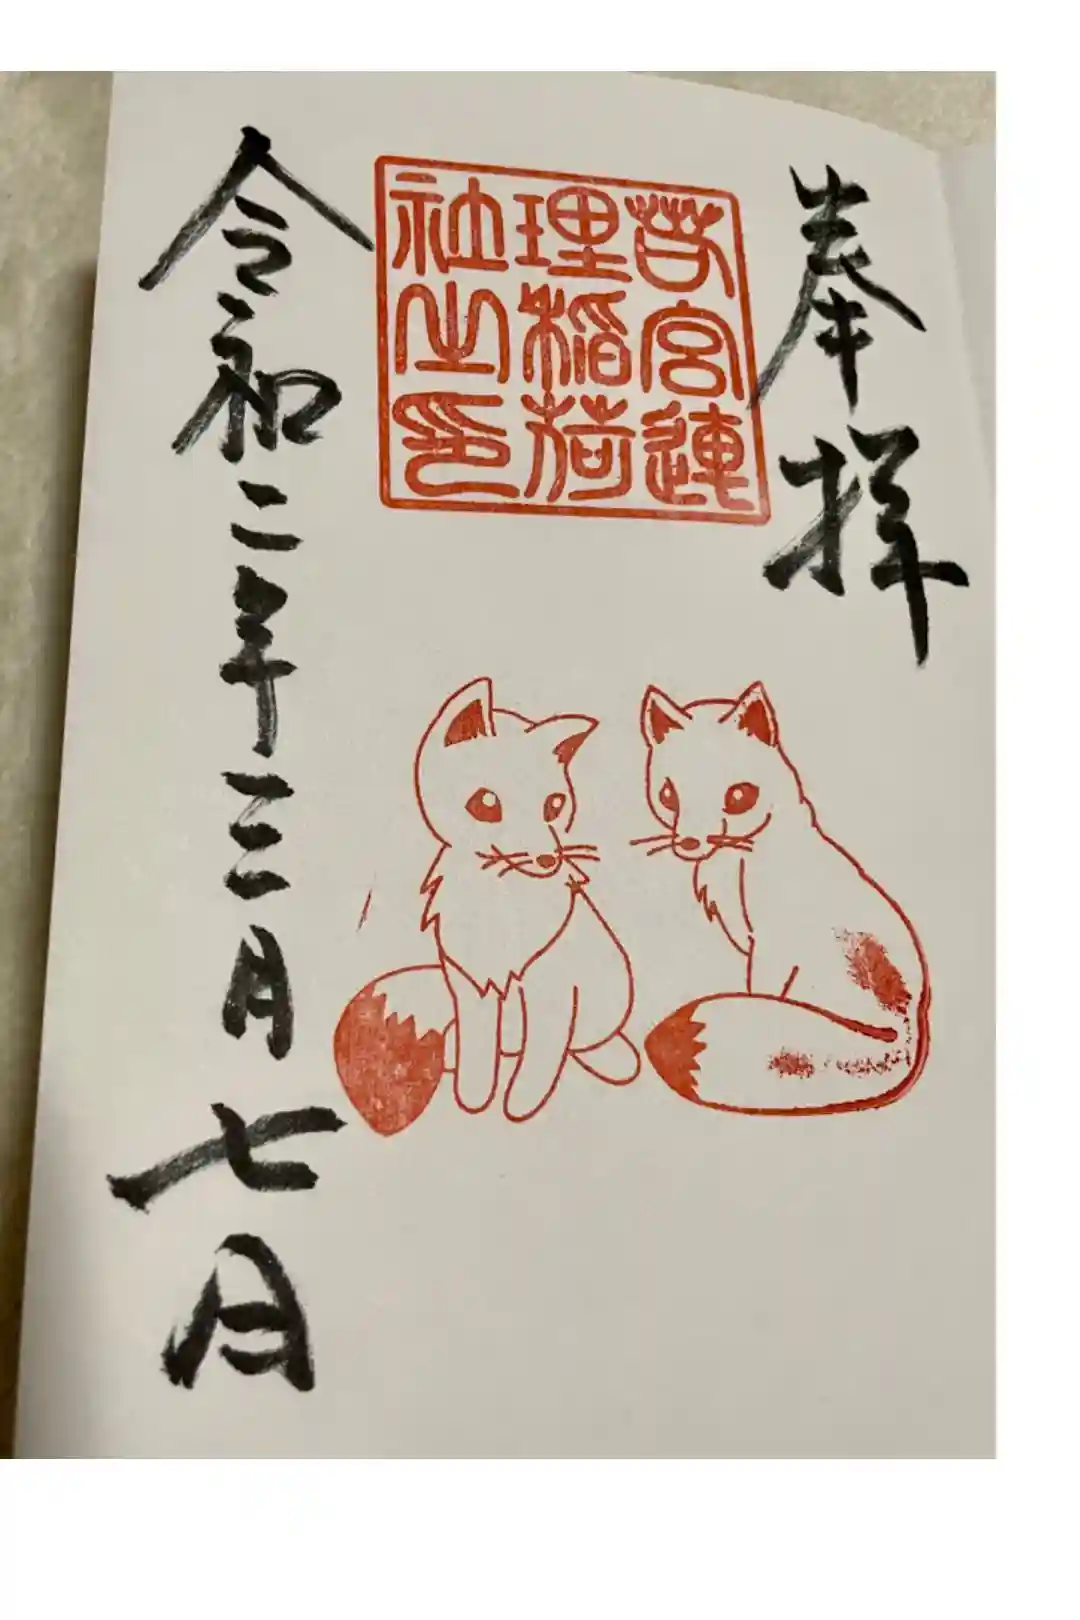 奉拝
若宮連
理稲荷
社之印
令和二年三月七日